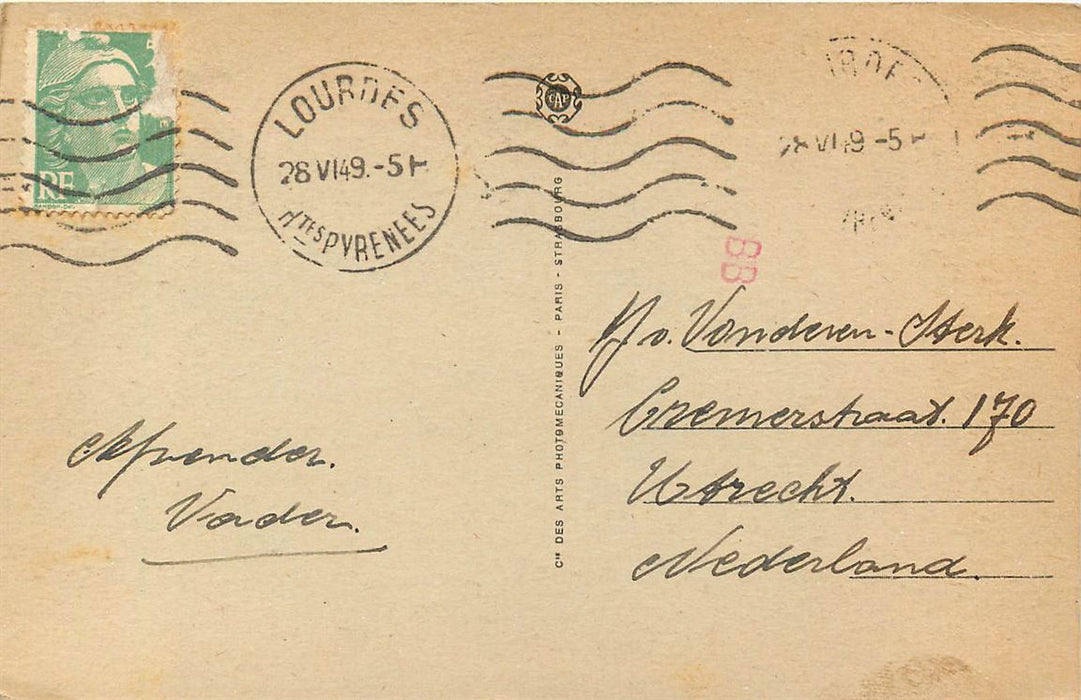 RF
LOURDES
28 VI 49.-5H
HTES PYRENEES
CAP
28 VI 49 -5H
BB
CIE DES ARTS PHOTOMECANIQUES - PARIS - STRASBOURG
Afzender.
Vader.
v. Vonderen-Sterk.
Cremerstraat. 170
Utrecht.
Nederland.